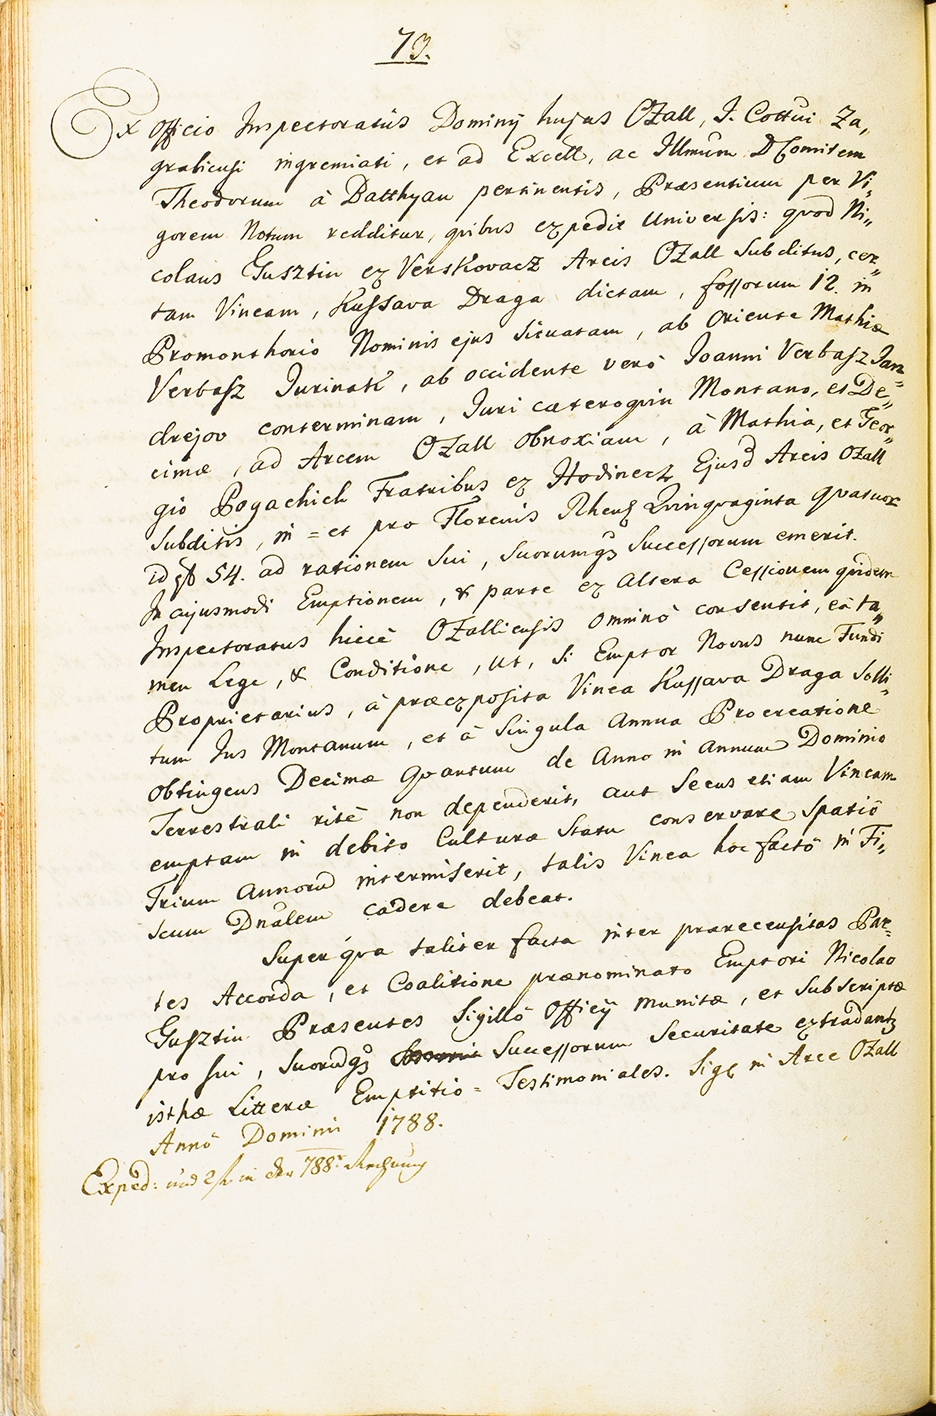 73.
Ex Officio Inspectoratûs Dominij hujus OZall, I. Cottui Za„
grabiensi ingremiati, et ad Excell, ac Illmum D Comitem
Theodorum à Batthyan pertinentis, Præsentium per Vi„
gorem Notum redditur, quibus expedit Universis: quod Ni„
colaus Gusztin ex Verskovacz Arcis OZall Subditus, cer„
tam Vineam, Kussava Draga dictam, fossorum 12. in
Promonthorio Nominis ejus Situatam, ab Oriente Mathiæ
Verbasz Jurinak, ab occidente verò Joanni Verbasz Jan„
drejov conterminam, Juri cæteroquin Montano, et De„
cimæ, ad Arcem OZall Obnoxiam, à Mathia, et Geor„
gio Pogachich Fratribus ex Hodinecz Ejusd Arcis OZall
Subditis, in = et pro Florenis Rhen Quinquaginta quatuor
id est 54. ad rationem Sui, Suorumq Successorum emerit.
In cujusmodi Emptionem, & parte ex altera Cessionem quidem
Inspectoratus hicce OZalliensis omninò consentit, eâ ta„
men Lege, & Conditione, ut, si Emptor Novus nunc Fundi
Proprietarius, à præexposita Vinea Kussava Draga Soli„
tum Jus Montanum, et à Singula annua Procreatione
obtingens Decimæ Quantum de Anno in annum Dominio
Terrestrali ritè non dependerit, aut Secus etiam Vineam
emptam in debito Culturæ Statu conservare Spatiô
Trium annorū intermiserit, talis Vinea hoc factô in Fi„
scum Dnalem cadere debeat.
Super qva taliter facta inter prærecensitas Par„
tes Accorda, et Coalitione prænominato Emptori Nicolao
Gusztin Præsentes Sigillô Officij munitæ, et subscriptæ
pro sui, Suorūq Successorum Securitate extradantur
isthæ Litteræ Emptitio = Testimoniales. Sig in Arce OZall
Annô Domini 1788.
Exped: und in der 788r Rechnung